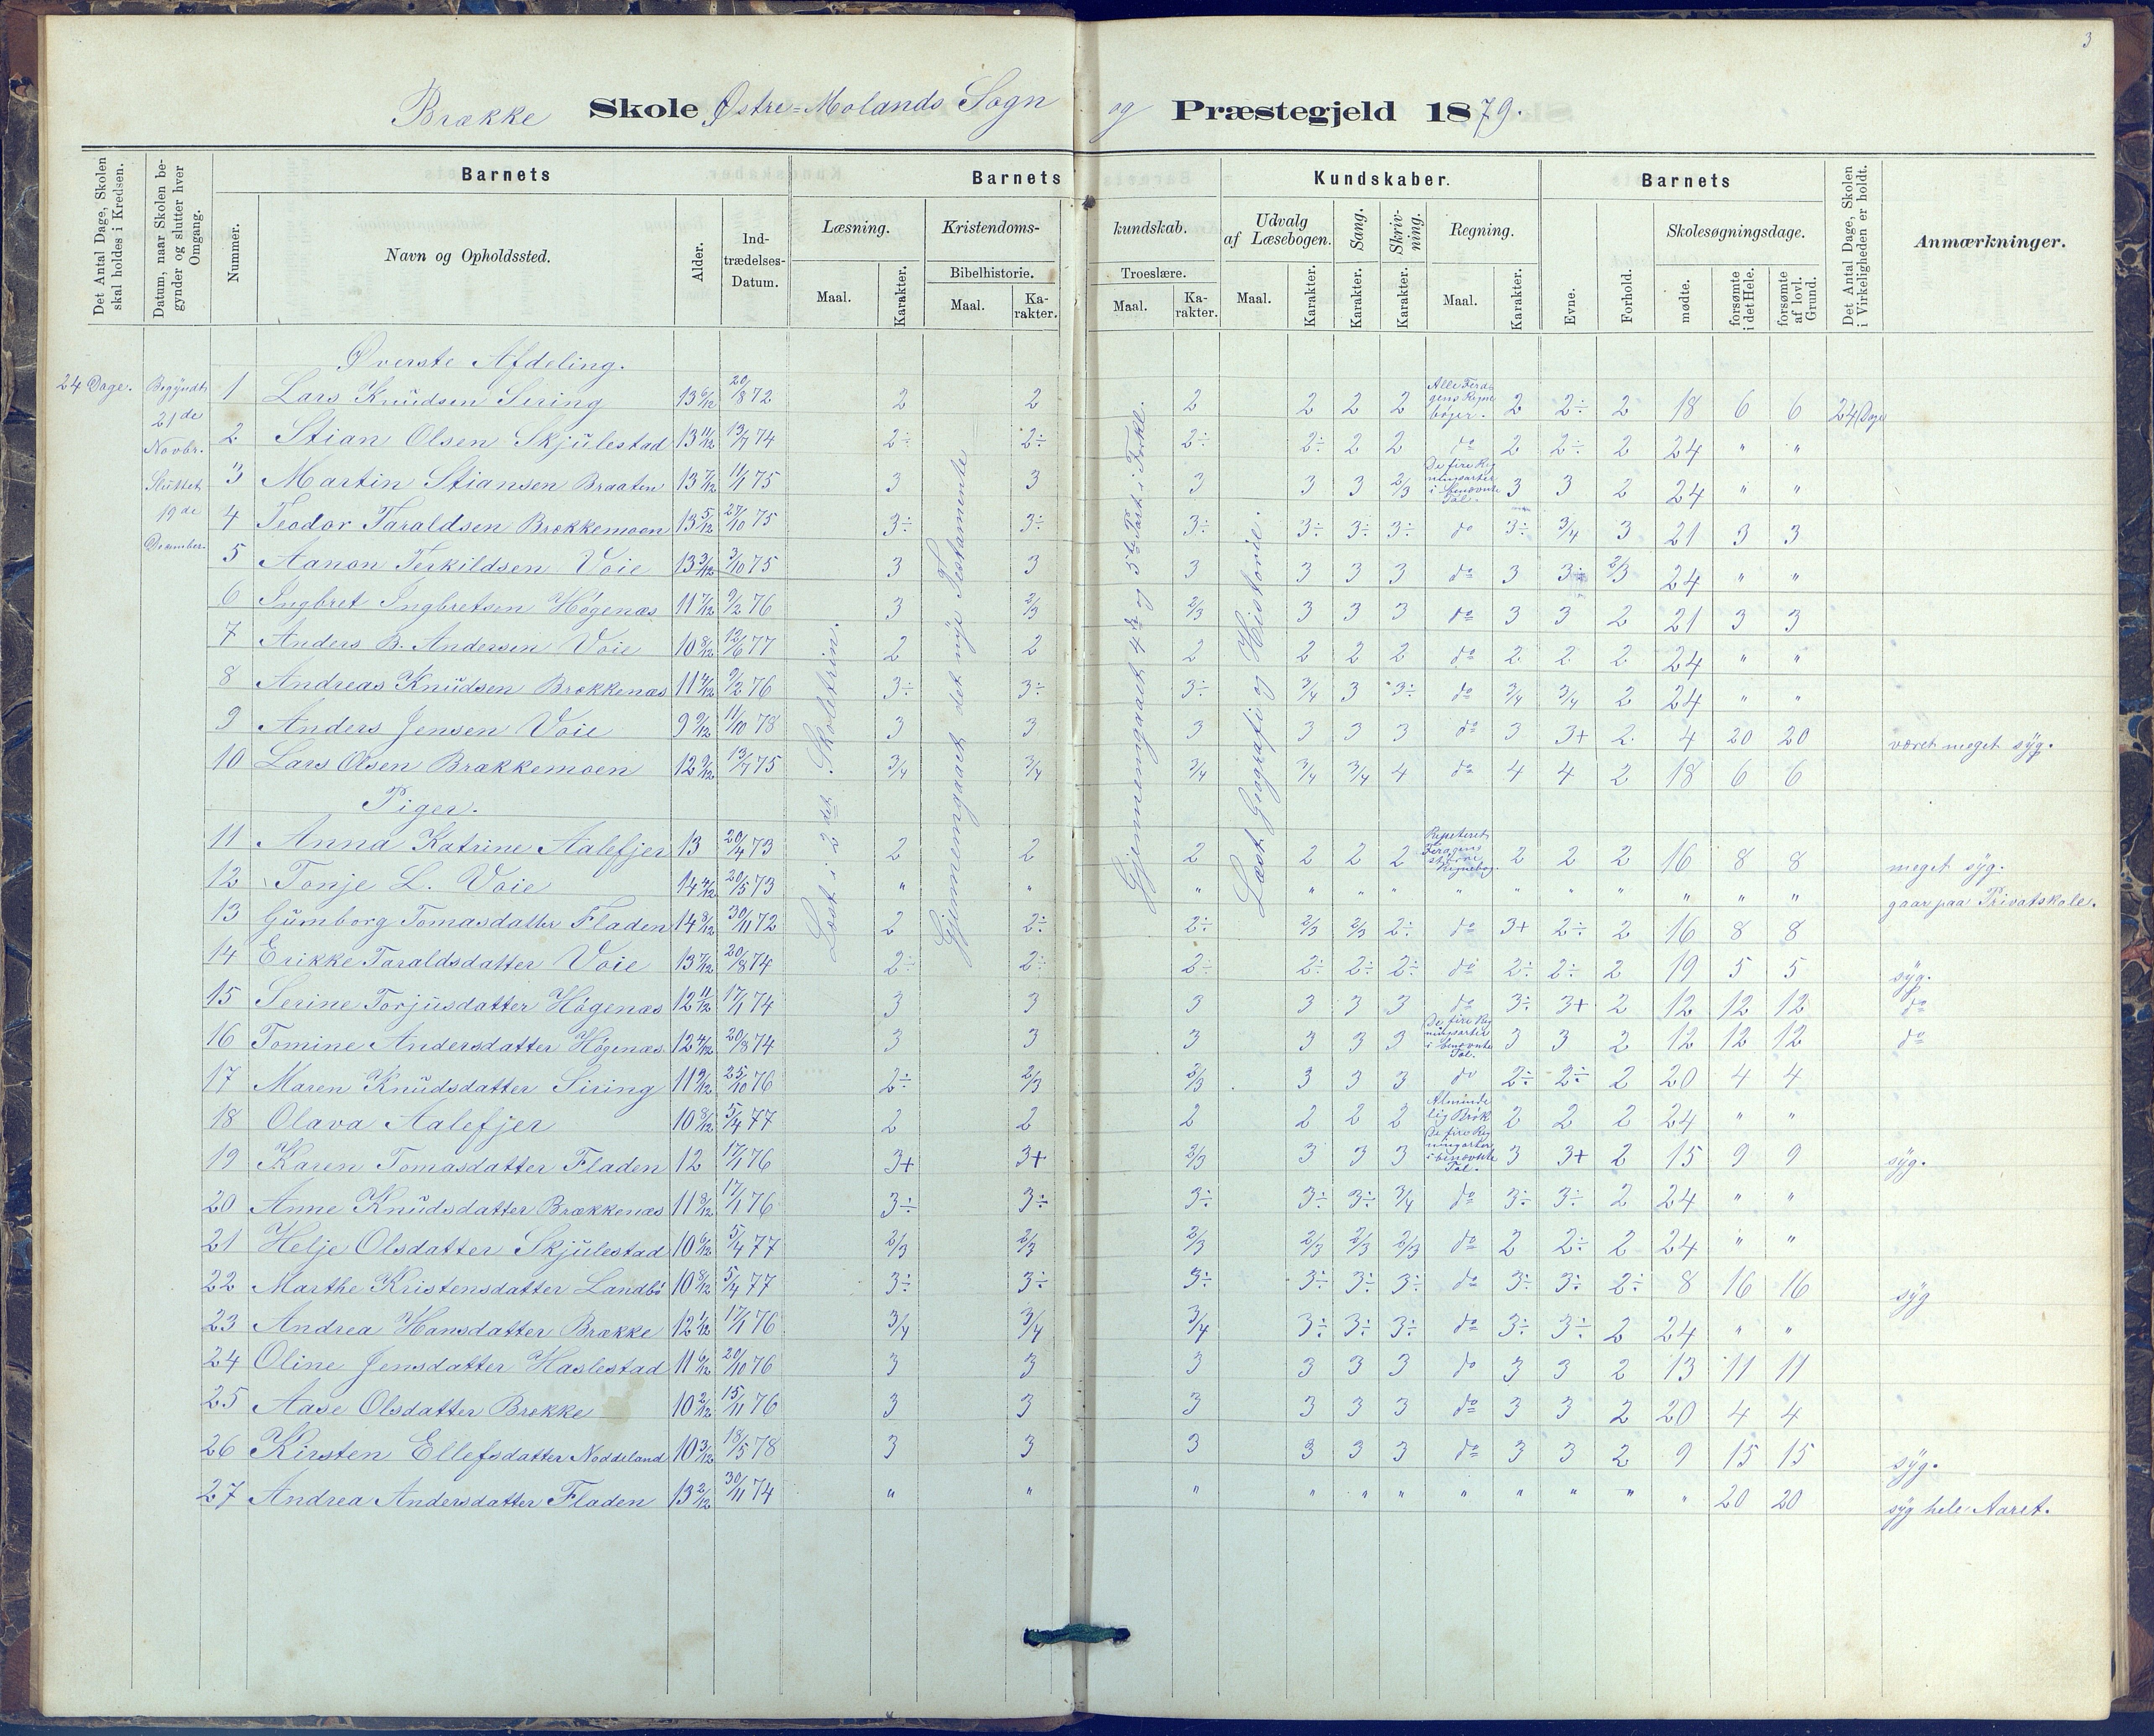 3
Brække Skole Østre=Molands Sogn og Præstegjeld 1879.
Det Antal Dage, Skolen skal holdes i Kredsen.
Datum, naar Skolen begynder og slutter hver Omgang.
Barnets
Nummer.
Navn og Opholdssted.
Alder.
Ind-
trædelses-
Datum.
Barnets
Kundskaber.
Læsning.
Maal.
Karakter.
Kristendoms-
kundskab.
Bibelhistorie.
Maal.
Ka-
rakter.
Troeslære.
Maal.
Ka-
rakter.
Udvalg
af Læsebogen.
Maal.
Karakter.
Sang.
Karakter.
Skriv-
ning.
Karakter.
Regning.
Maal.
Karakter.
Barnets
Evne.
Forhold.
Skolesøgningsdage.
mødte.
forsømte
i det Hele.
forsømte
af lovl.
Grund.
Det Antal Dage, Skolen
i Virkeligheden er holdt.
Anmærkninger.
24 Dage.
Begyndt
21de
Novbr.
Sluttet
19de
December.
Læst i 2det Skoletrin.
Gjennemgaaet det nye Testamente
Gjennemgaaet 4de og 5te Part i Forkl.
Læst Geografi og Historie.
Øverste Afdeling.
1 Lars Knudsen Sering 13 6/12 20/8 72 2 2 2 2 2 2 Alle Ferdigens Regnebøger. 2 2÷ 2 18 6 6 24 Dage
2 Stian Olsen Skjulestad 13 11/12 13/7 74 2÷ 2÷ 2÷ 2÷ 2 2 do 2 2÷ 2 24 " "
3 Martin Stiansen Braaten 13 7/12 11/1 75 3 3 3 3 3 2/3 De fire Regningsarter i benævnte Tal. 3 3 2 24 " "
4 Teodor Taraldsen Brækkemoen 13 5/12 27/10 75 3÷ 3÷ 3÷ 3÷ 3÷ 3÷ do 3÷ 3/4 3 21 3 3
5 Aanon Terkildsen Voie 13 3/12 3/10 75 3 3 3 3 3 3 do 3 3÷ 2/3 24 " "
6 Ingbret Ingbretsen Høgenæs 11 7/12 9/2 76 3 2/3 2/3 3 3 3 do 3 3 2 21 3 3
7 Anders B. Andersen Voie 10 8/12 12/6 77 2 2 2 2 2 2 do 2 2 2 24 " "
8 Andreas Knudsen Brækkenæs 11 4/12 9/2 76 3÷ 3÷ 3÷ 3/4 3 3÷ do 3/4 3/4 2 24 " "
9 Anders Jensen Voie 9 9/12 11/10 78 3 3 3 3 3 3 do 3 3+ 2 4 20 20 været meget syg.
10 Lars Olsen Brækkemoen 12 9/12 13/7 75 3/4 3/4 3/4 3/4 3/4 4 do 4 4 2 18 6 6
Piger.
11 Anna Katrine Aalefjer 13 20/4 73 2 2 2 2 2 2 Repeteret 2 2 2 16 8 8 meget syg.
12 Tonje L. Voie 14 4/12 20/5 73 " " " " " " " " " " " " " gaar paa Privatskole.
13 Gumborg Tomasdatter Fladen 14 8/12 30/11 72 2 2÷ 2÷ 2/3 2/3 2÷ do 3+ 2÷ 2 16 8 8
14 Erikke Taraldsdatter Voie 13 7/12 20/8 74 2÷ 2÷ 2÷ 2÷ 2÷ 2÷ do 2÷ 2÷ 2 19 5 5 syg.
15 Serine Torjusdatter Høgenæs 12 11/12 17/1 74 3 3 3 3 3 3 do 3÷ 3+ 2 12 12 12 do
16 Tomine Andersdatter Høgenæs 12 4/12 20/8 74 3 3 3 3 3 3 De fire Regningsarter i benævnte Tal. 3 3 2 12 12 12 do
17 Maren Knudsdatter Siring 11 9/12 25/10 76 2÷ 2/3 2/3 3 3 3 do 2÷ 2÷ 2 20 4 4
18 Olava Aalefjer 10 8/12 5/4 77 2 2 2 2 2 2 Almindelig Brøk 2 2 2 24 " "
19 Karen Tomasdatter Fladen 12 17/1 76 3+ 3+ 2/3 3 3 3 De fire Regningsarter i benævnte Tal. 3 3+ 2 15 9 9 syg.
20 Anne Knudsdatter Brækkenæs 11 8/12 17/1 76 3÷ 3÷ 3÷ 3÷ 3÷ 3/4 do 3÷ 3÷ 2 24 " "
21 Helje Olsdatter Skjulestad 10 6/12 5/4 77 2/3 2/3 2/3 2/3 2/3 2/3 do 2 2÷ 2 24 " "
22 Marthe Kristensdatter Landbö 10 8/12 5/4 77 3÷ 3÷ 3÷ 3÷ 3÷ 3÷ do 3÷ 3÷ 2÷ 8 16 16 syg
23 Andrea Hansdatter Brække 12 1/12 17/1 76 3/4 3/4 3/4 3÷ 3÷ 3÷ do 3÷ 3÷ 2 24 " "
24 Oline Jensdatter Haslestad 11 6/12 20/10 76 3 3 3 3 3 3 do 3 3 2 13 11 11
25 Aase Olsdatter Brække 10 2/12 15/11 76 3 3 3 3 3 3 do 3 3 2 20 4 4
26 Kirsten Ellefsdatter Noddeland 10 3/12 18/5 78 3 3 3 3 3 3 do 3 3 2 9 15 15 syg.
27 Andrea Andersdatter Fladen 13 2/12 30/11 74 " " " " " " " " " " " 20 20 syg hele Aaret.